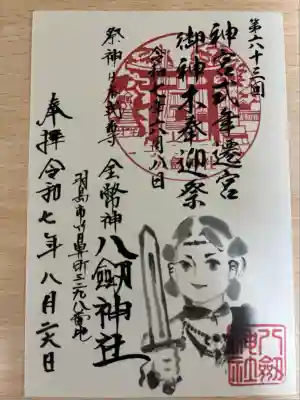 第六十三回
神宮式年遷宮
御神木奉迎祭
令和七年六月八日
祭神 日本武尊
金幣神 八劔神社
羽島市竹鼻町三七八番地
奉拝 令和七年八月六日
八劔神社